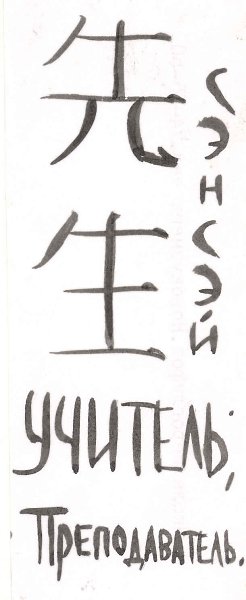 先生
сэнсэй
учитель;
преподаватель.